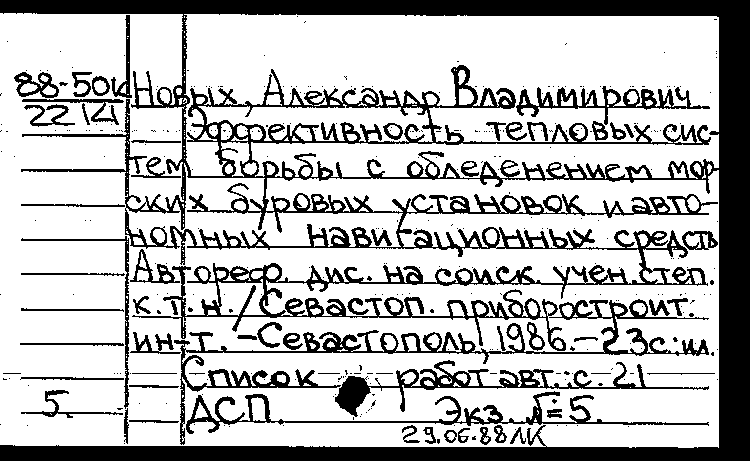 88-50к Новых, Александр Владимирович
2214 Эффективность тепловых сис-
тем борьбы с обледенением мор-
ских буровых установок и авто-
номных навигационных средств
Автореф. дис. на соиск. учен. степ.
к.т.н. / Севастоп. приборостроит.
ин-т. - Севастополь, 1986. - 23с.: ил.
Список работ авт.: с. 21
5. ДСП. Экз. №=5.
29.06.88 ЛК